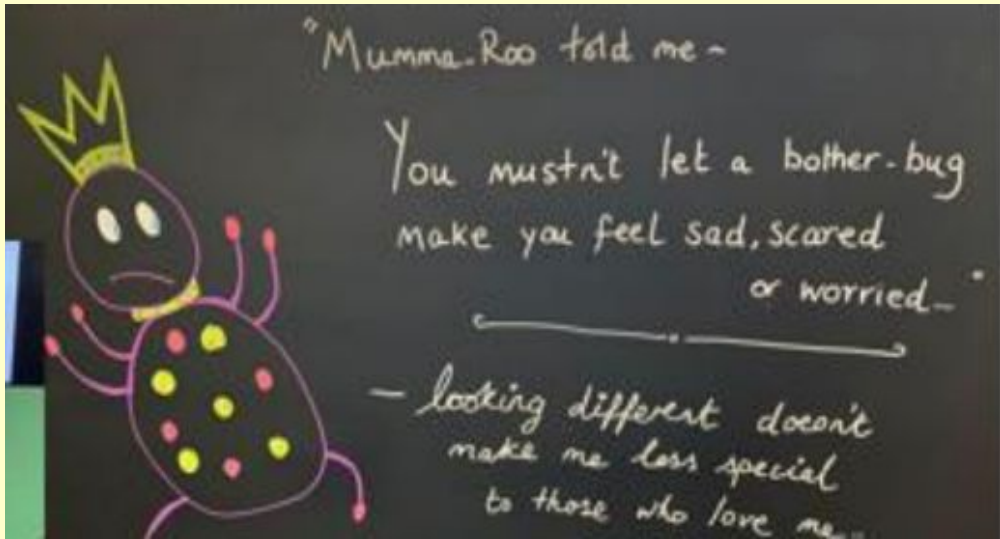 "Mumma-Roo told me ~
You mustn't let a bother-bug
make you feel sad, scared
or worried_"
- looking different doesn't
make me less special
to those who love me...